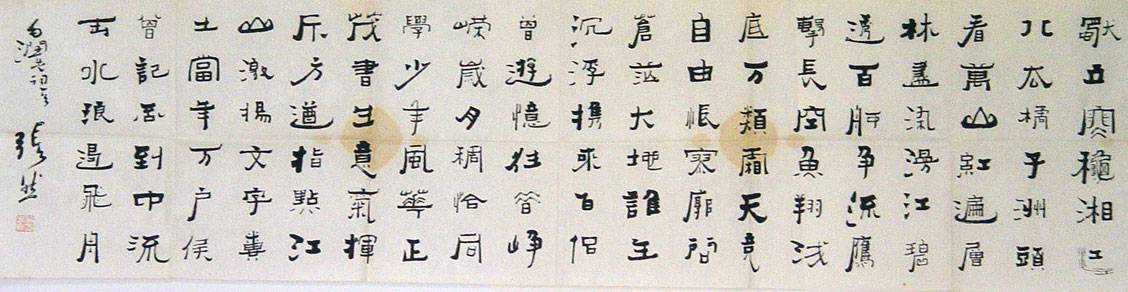 獨立寒穐湘江
北去橘子洲頭
看萬山紅遍層
林盡染漫江碧
透百舸爭流鷹
擊長空魚翔浅
底万類霜天競
自由悵寥廓問
蒼茫大地誰主
沉浮携來百侶
曾遊憶往昔崢
嶸歲月稠恰同
學少年風華正
茂書生意氣揮
斥方遒指點江
山激揚文字糞
土當年万户侯
曾記否到中流
击水浪遏飛舟
潤芝詞
張